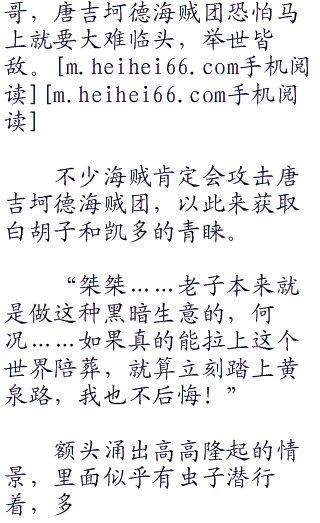 哥，唐吉坷德海贼团恐怕马
上就要大难临头，举世皆
敌。[m.heihei66.com手机阅
读][m.heihei66.com手机阅
读]
不少海贼肯定会攻击唐
吉坷德海贼团，以此来获取
白胡子和凯多的青睐。
“桀桀……老子本来就
是做这种黑暗生意的，何
况……如果真的能拉上这个
世界陪葬，就算立刻踏上黄
泉路，我也不后悔！”
额头涌出高高隆起的情
景，里面似乎有虫子潜行
着，多